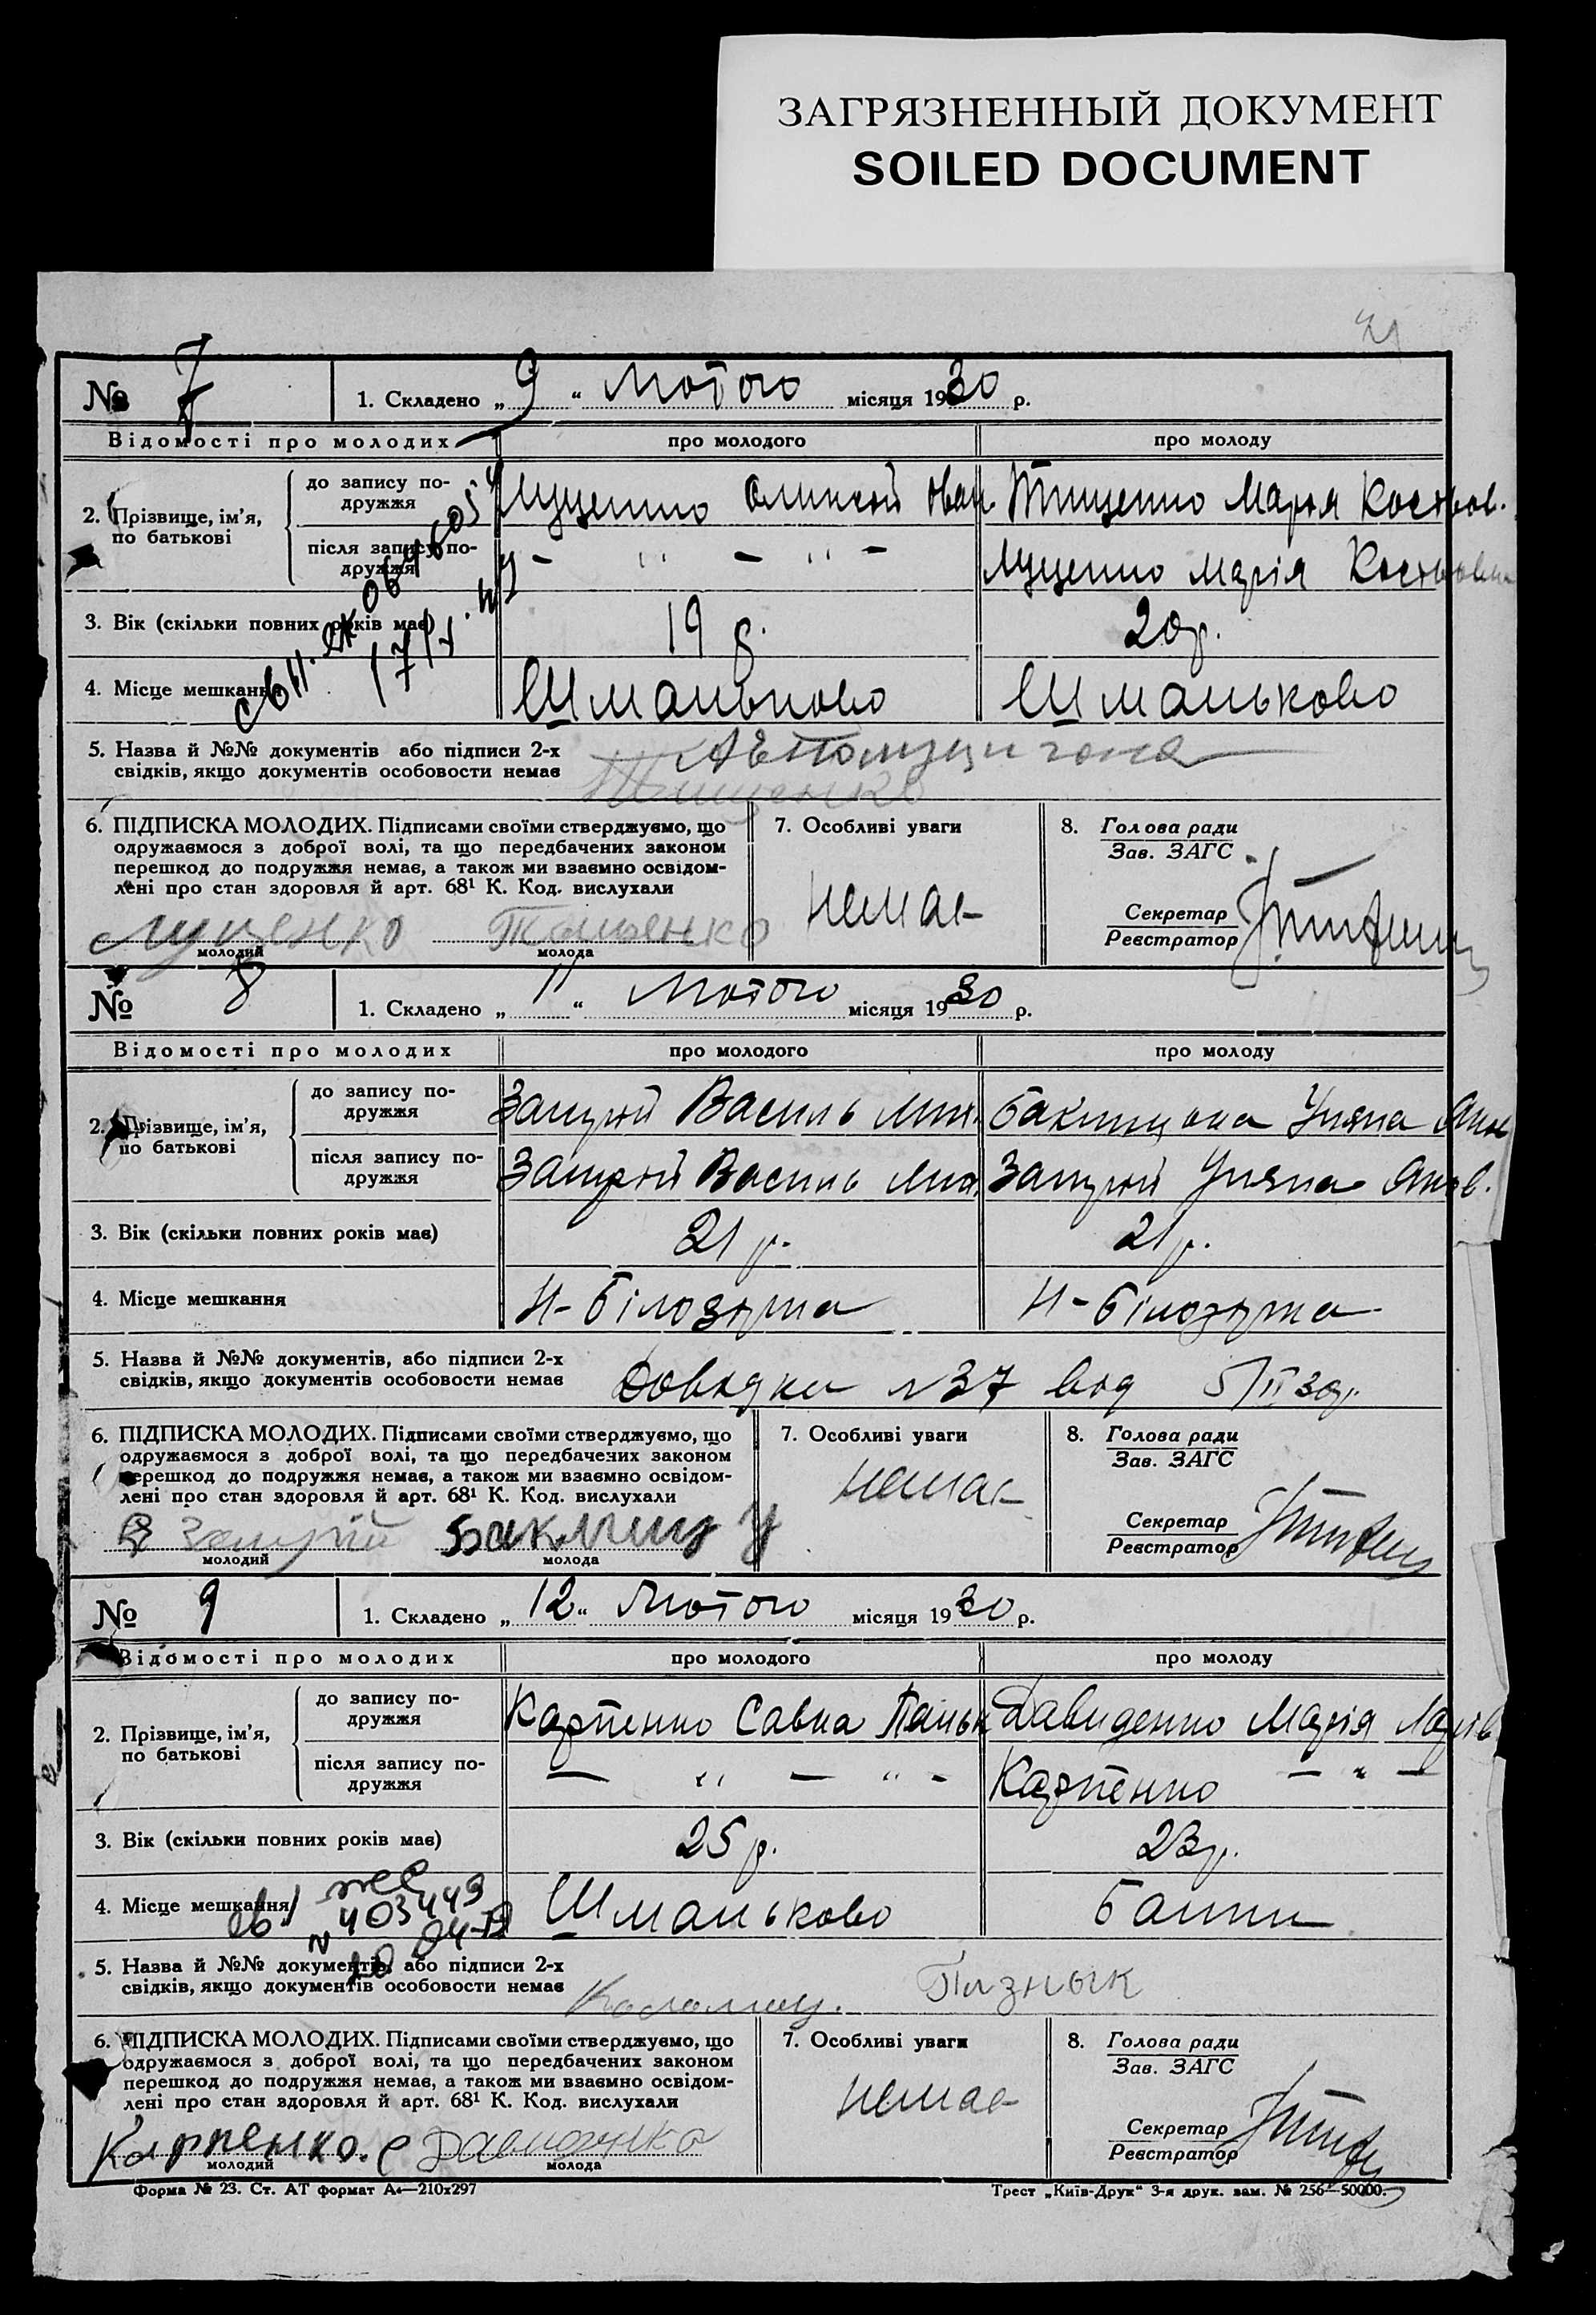 ЗАГРЯЗНЕННЫЙ ДОКУМЕНТ
SOILED DOCUMENT
№ 7 1. Складено „ 9 “ Лютого місяця 1930 р.
Відомості про молодих про молодого про молоду
2. Прізвище, ім’я, по батькові
до запису подружжя Луценко Оликсій Іван. Тищенко Марія Костьов.
після запису подружжя — " — " — Луценко Марія Костьовн
3. Вік (скільки повних років має) 19 р. 20 р.
4. Місце мешкання Шманьково Шманьково
5. Назва й №№ документів або підписи 2-х
свідків, якщо документів особовости немає
Тищенко
6. ПІДПИСКА МОЛОДИХ. Підписами своїми стверджуємо, що 7. Особливі уваги 8. Голова ради
одружаємося з доброї волі, та що передбачених законом Зав. ЗАГС
перешкод до подружжя немає, а також ми взаємно освідом- немає
лені про стан здоровля й арт. 68¹ К. Код. вислухали Секретар
Луценко Тищенко Реєстратор
молодий молода
№ 8 1. Складено „ 11 “ Лютого місяця 1930 р.
Відомості про молодих про молодого про молоду
2. Прізвище, ім’я, по батькові
до запису подружжя Василь Мих. Уляна Яков
після запису подружжя Василь Мих. Уляна Яков.
3. Вік (скільки повних років має) 21 р. 21 р.
4. Місце мешкання Н-Білозірка Н-Білозірка
5. Назва й №№ документів, або підписи 2-х
свідків, якщо документів особовости немає Довідка №37 від 5/II 30р.
6. ПІДПИСКА МОЛОДИХ. Підписами своїми стверджуємо, що 7. Особливі уваги 8. Голова ради
одружаємося з доброї волі, та що передбачених законом Зав. ЗАГС
перешкод до подружжя немає, а також ми взаємно освідом- немає
лені про стан здоровля й арт. 68¹ К. Код. вислухали Секретар
Реєстратор
молодий молода
№ 9 1. Складено „ 12 “ Лютого місяця 1930 р.
Відомості про молодих про молодого про молоду
2. Прізвище, ім’я, по батькові
до запису подружжя Карпенко Савка Паньк Давиденко Марія
після запису подружжя — " — " — Карпенко — " —
3. Вік (скільки повних років має) 25 р. 23 р.
4. Місце мешкання Шманьково
№ 403449
5. Назва й №№ документів, або підписи 2-х
свідків, якщо документів особовости немає Коломиц. Пизнык
6. ПІДПИСКА МОЛОДИХ. Підписами своїми стверджуємо, що 7. Особливі уваги 8. Голова ради
одружаємося з доброї волі, та що передбачених законом Зав. ЗАГС
перешкод до подружжя немає, а також ми взаємно освідом- немає
лені про стан здоровля й арт. 68¹ К. Код. вислухали Секретар
Карпенко. С Давиденко Реєстратор
молодий молода
Форма № 23. Ст. АТ формат А₄—210x297 Трест „Київ-Друк“ 3-я друк. зам. № 256—50000.